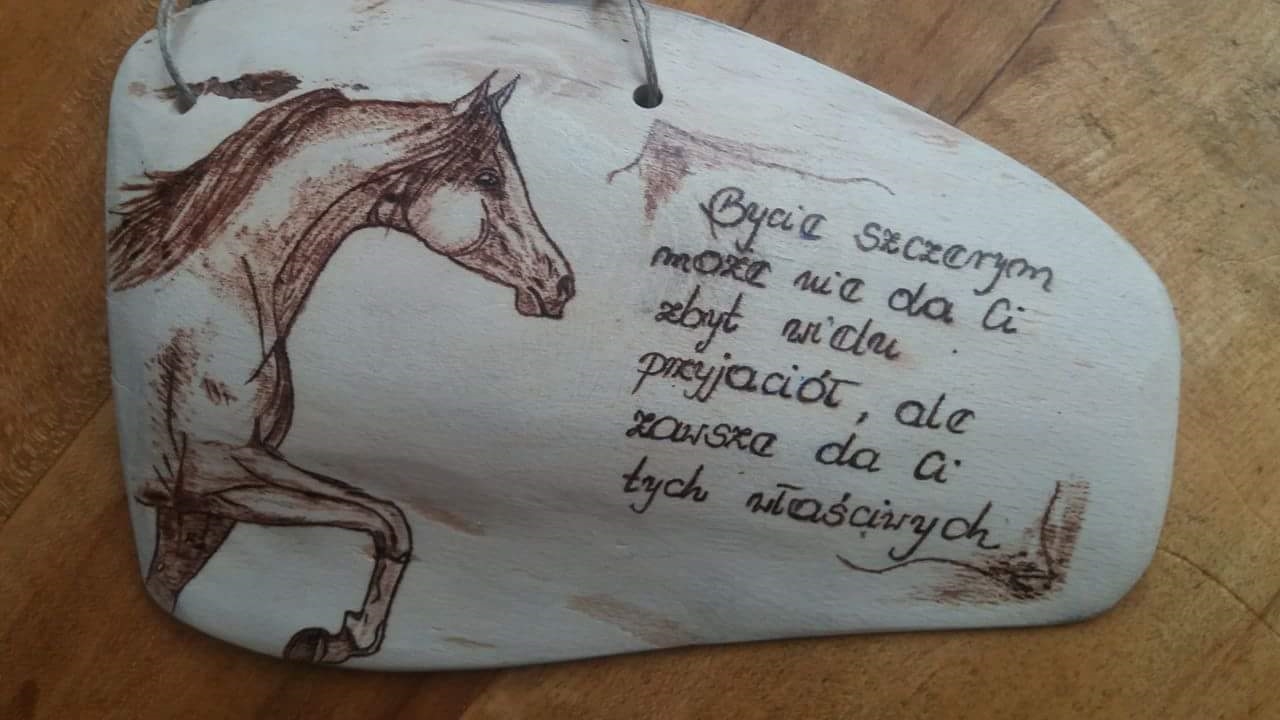 Bycie szczerym
może nie da Ci
zbyt wielu
przyjaciół, ale
zawsze da Ci
tych właściwych